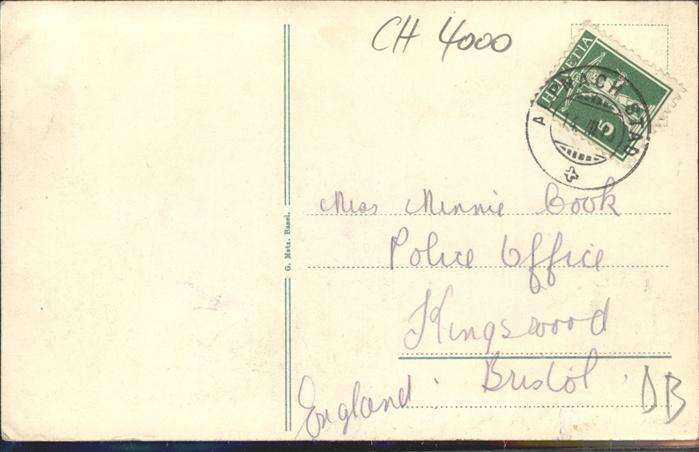 CH 4000
HELVETIA
5
ALPNACH STAD
G. Metz. Basel.
Miss Minnie Cook
Police Office
Kingswood
Bristol.
England.
DB